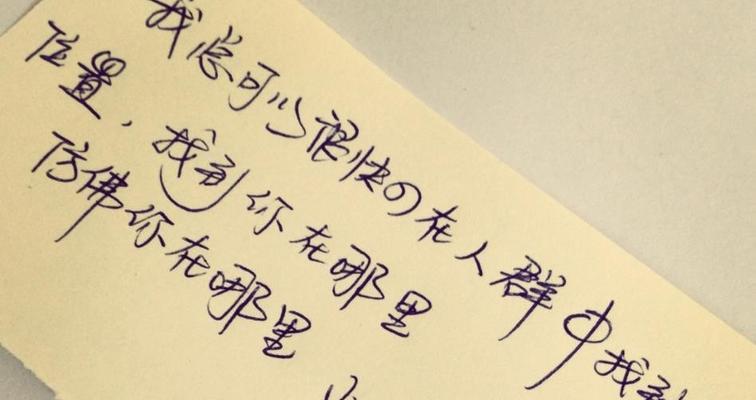 我总可以很快の在人群中找到
位置，找到你在哪里
仿佛你在哪里